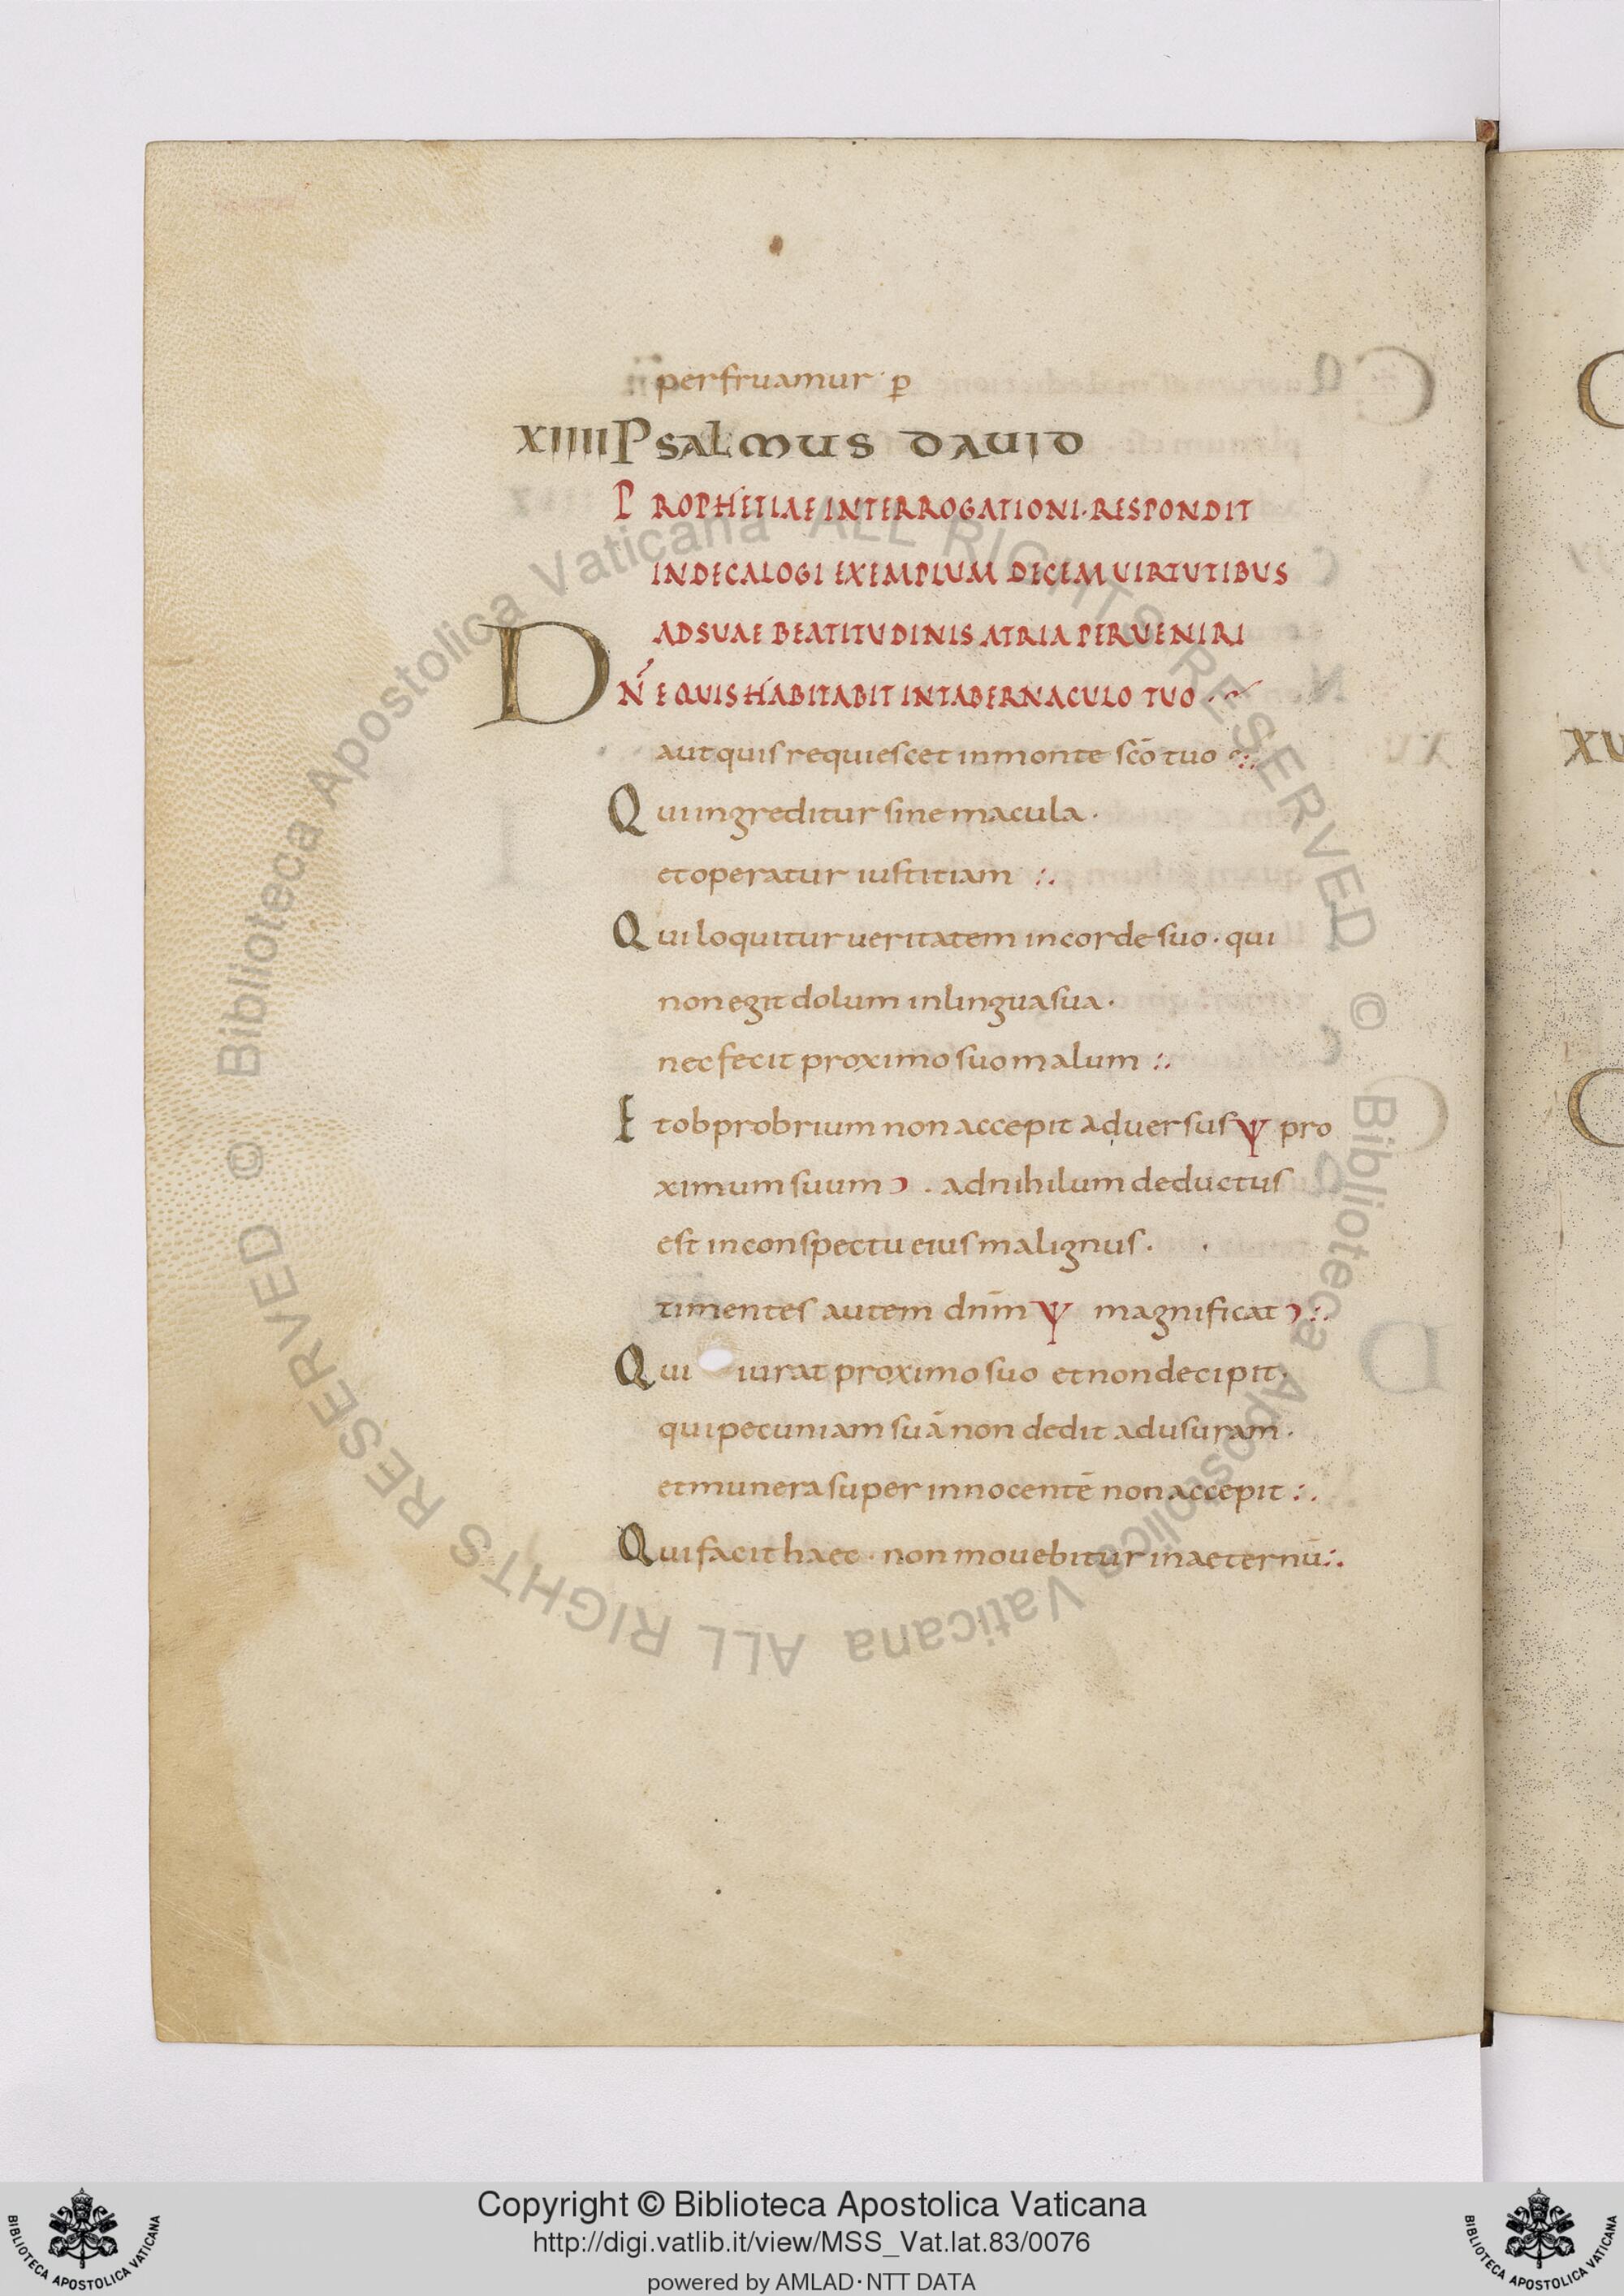 perfruamur · p̱
XIIII Psalmus david
PROPHETIAE INTERROGATIONI · RESPONDIT
INDECALOGI EXEMPLUM DECEM UIRTUTIBUS
ADSUAE BEATITUDINIS ATRIA PERUENIRI
DN̄E QUIS HABITABIT IN TABERNACULO TUO ·
aut quis requiescet in monte sc̄o tuo :.
Qui ingreditur sine macula ·
et operatur iustitiam :.
Qui loquitur ueritatem in corde suo · qui
non egit dolum in lingua sua ·
nec fecit proximo suo malum :.
Et obprobrium non accepit aduersus Ѱ pro
ximum suum Ɔ · ad nihilum deductus
est in conspectu eius malignus ·
timentes autem dn̄m Ѱ magnificat Ɔ :.
Qui iurat proximo suo et non decipit ·
qui pecuniam suā non dedit ad usuram ·
et munera super innocentē non accepit :.
Qui facit haec · non mouebitur in aeternū :.
XU
© Biblioteca Apostolica Vaticana ALL RIGHTS RESERVED © Biblioteca Apostolica Vaticana ALL RIGHTS RESERVED
Copyright © Biblioteca Apostolica Vaticana
http://digi.vatlib.it/view/MSS_Vat.lat.83/0076
powered by AMLAD·NTT DATA
BIBLIOTECA APOSTOLICA VATICANA
BIBLIOTECA APOSTOLICA VATICANA